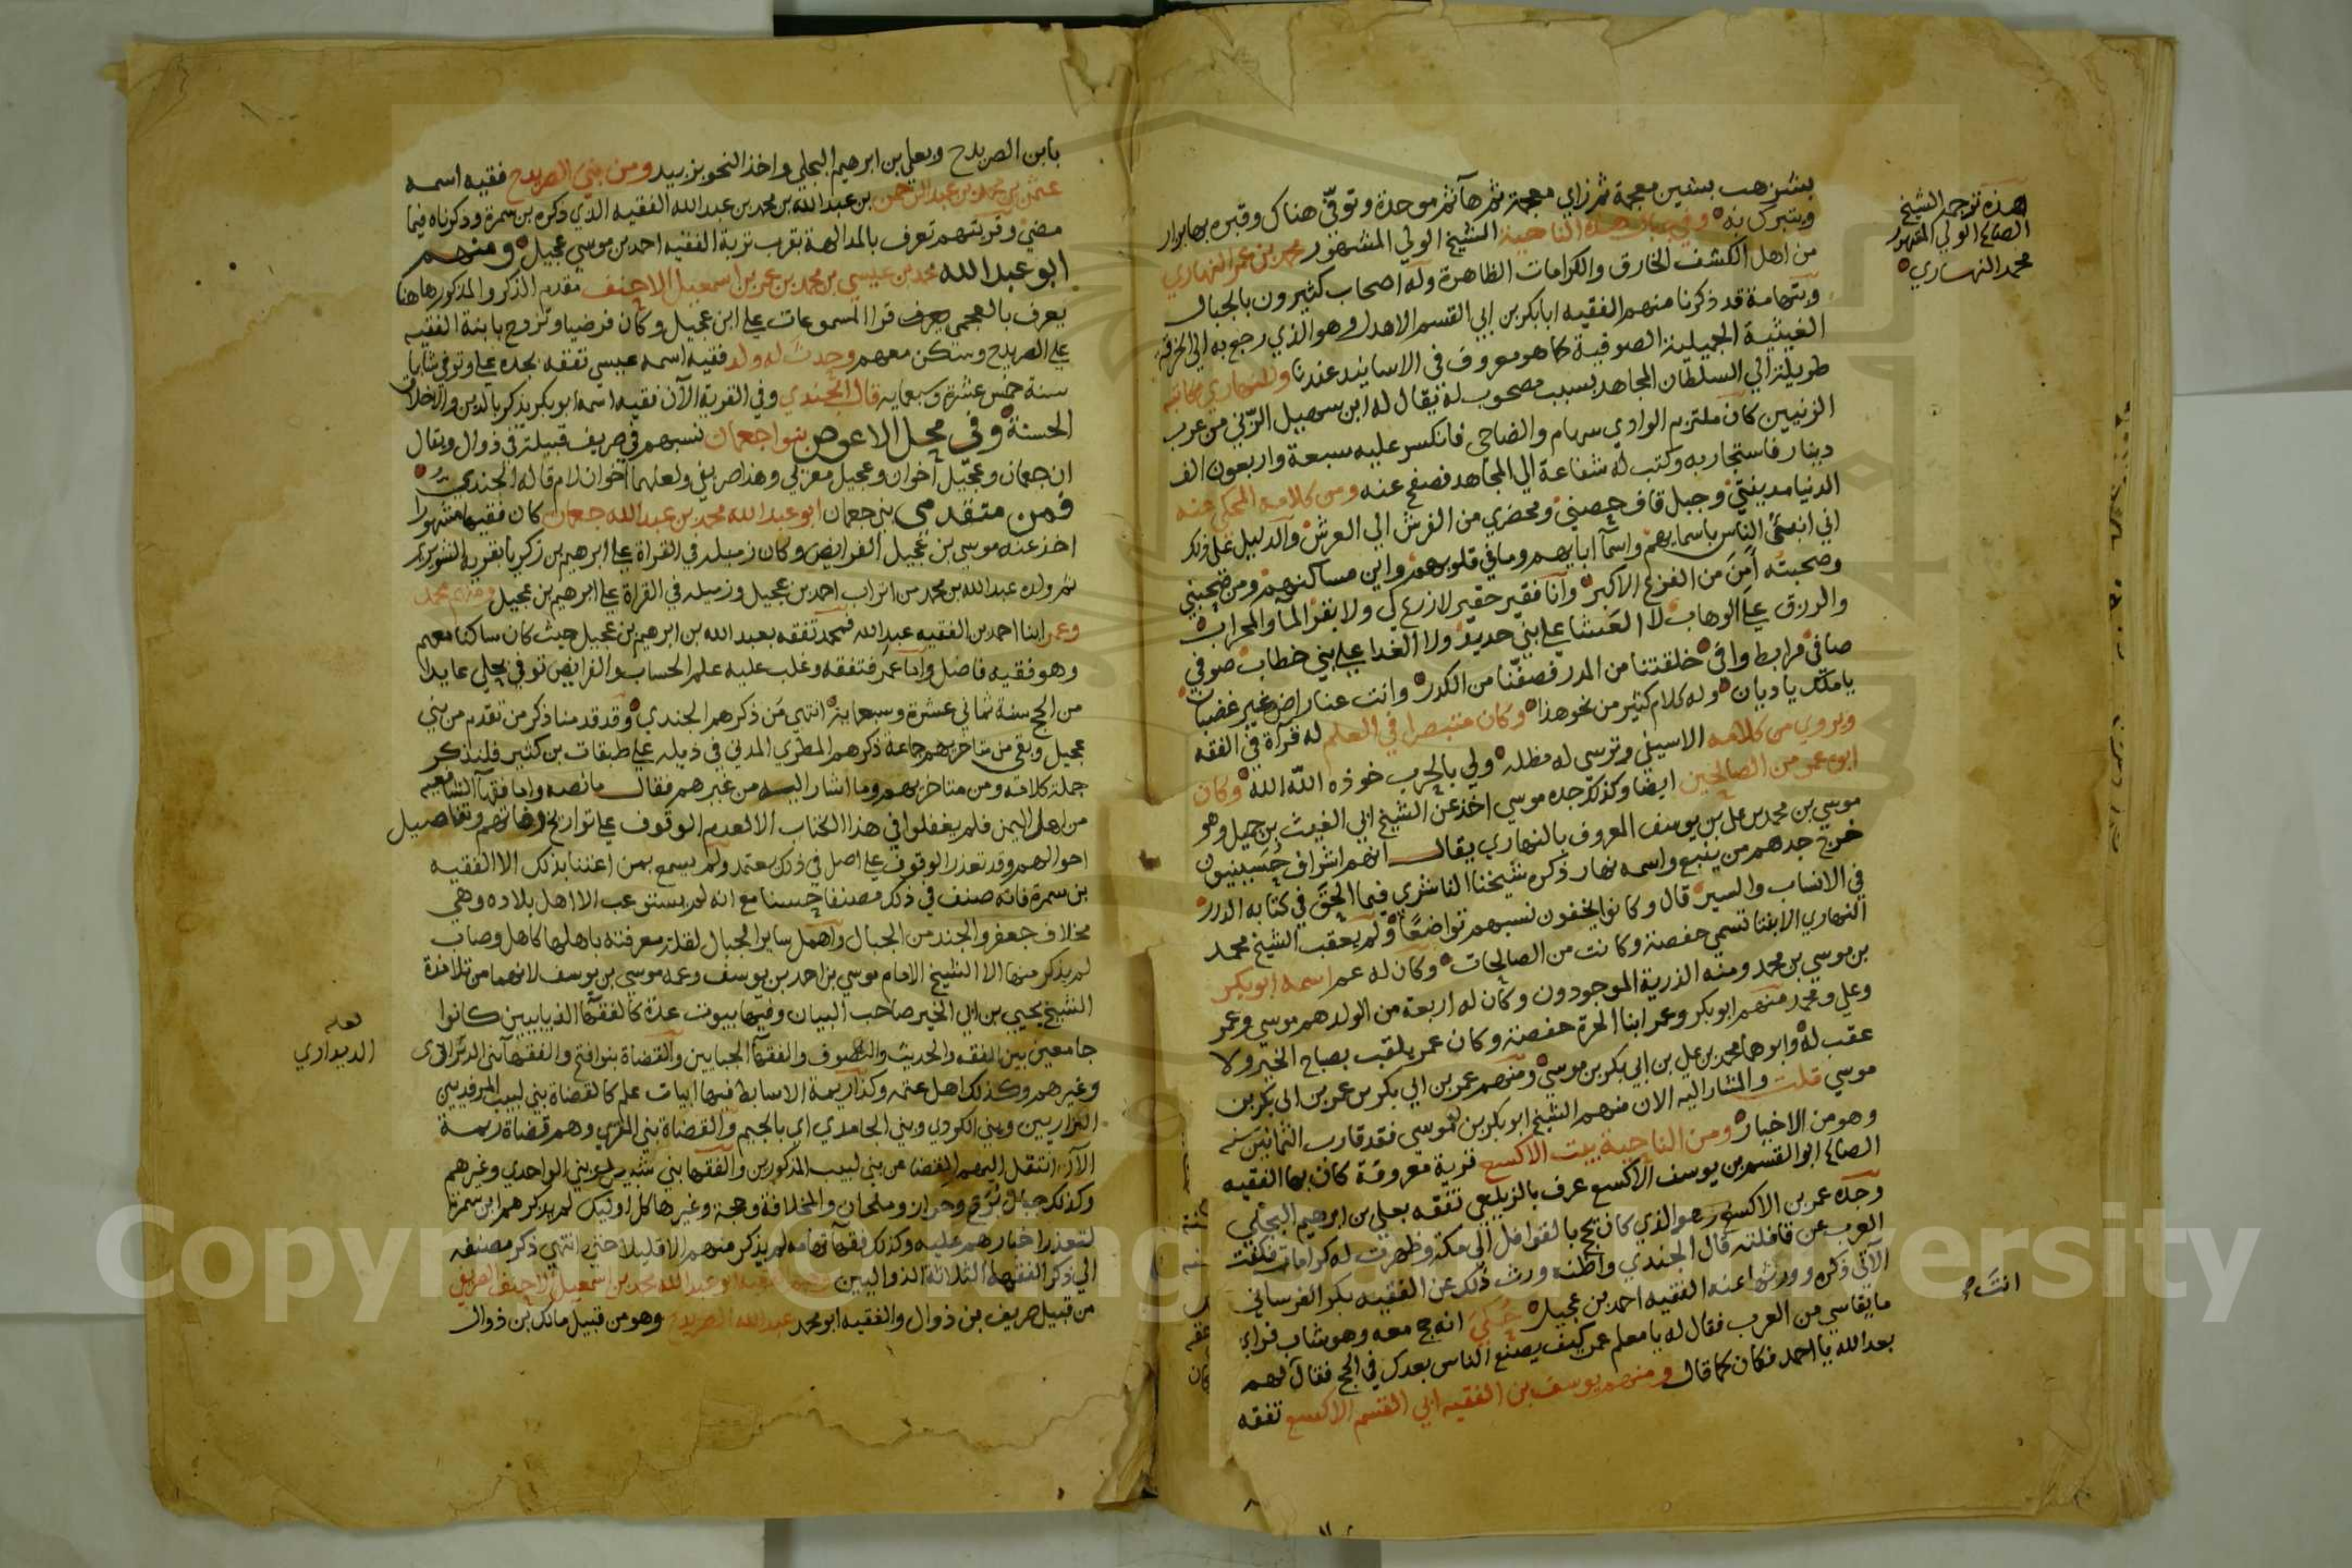 هذه ترجمة الشيخ
الصالح الولي المشهور
محمد النهاري
بشزهب بشين معجمة ثم زاي معجمة ثم هآ ثم موحدة وتوفي هناك وقبره بها يزار
ويتبرك به وفي هذه الناحية الشيخ الولي المشهور محمد بن عمر النهاري
من اهل الكشف الخارق والكرامات الظاهرة وله اصحاب كثيرون بالجبال
وبتهامة قد ذكرنا منهم الفقيه ابا بكر بن ابي القسم الاهدل وهو الذي رجع به الى الخرقة
الغيثية الجميلية الصوفية كما هو معروف في الاسانيد عندنا وللنهاري مكاتبة
طويلة الى السلطان المجاهد بسبب مصحوب له يقال له ابن سهيل الزني من عرب
الزنيين كان ملتزم الوادي سهام والضاحي فانكسر عليه سبعة واربعون الف
دينار فاستجار به وكتب له شفاعة الى المجاهد فصفح عنه ومن كلامه المحكي عنه
الدنيا مدينتي وجبل قاف حصني ومحضري من الفرش الى العرش والدليل على ذلك
اني انبئ الناس باسمايهم واسمآ ابايهم وما في قلوبهم واين مساكنهم ومن صحبني
وصحبته أمن من الفزع الاكبر وانا فقير حقير لا زرع لي ولا بقر المآ والمحراب
والرزق على الوهاب لا العشا على بني حديد ولا الغدا على بني خطاب صوفي
صافي مرابط وافي خلقتنا من المدر فصفنا من الكدر وانت عنا راض غير غضبان
يا ملك يا ديان وله كلام كثير من نحو هذا وكان متبصرا في العلم له قرآة في الفقه
ويروى من كلامه الا سيفي وترسي له مظله ولي بالحرب خوذه الله الله وكان
ابوه عمر من الصالحين ايضا وكذلك جده موسى اخذ عن الشيخ ابي الغيث بن جميل وهو
موسى بن محمد بن علي بن يوسف المعروف بالنهاري يقال انهم اشراف حسينيون
خرج جدهم من ينبع واسمه نهار ذكره شيخنا الناشري فيما الحق في كتابه الدرر
في الانساب والسير قال وكانوا يخفون نسبهم تواضعًا ولم يعقب الشيخ محمد
النهاري الا بنتا تسمي حفصة وكانت من الصالحات وكان له عم اسمه ابو بكر
بن موسى بن محمد ومنه الذرية الموجودون وكان له اربعة من الولد هم موسى وعمر
وعلي ومحمد منهم ابو بكر وعمر ابنا الحرة حفصة وكان عمر يلقب بصباح الخير ولا
عقب له وابوهما محمد بن علي بن ابي بكر بن موسى ومنهم عمر بن ابي بكر بن عمر بن ابي بكر بن
موسى قلت والمشار اليه الان منهم الشيخ ابو بكر بن موسى فقد قارب الثمانين سنة
وهو من الاخيار ومن الناحية بيت الاكسع قرية معروفة كان بها الفقيه
الصالح ابو القسم بن يوسف الاكسع عرف بالزيلعي تفقه بعلي بن ابرهيم البجلي
وجده عمر بن الاكسع هو الذي كان يحج بالقوافل الى مكة وظهرت له كرامات فكفت
العرب عن قافلته قال الجندي واظنه ورث ذلك عن الفقيه بكر الفرساني
الآتي ذكره وورثها عنه الفقيه احمد بن عجيل حكي انه حج معه وهو شاب فراى
ما يقاسي من العرب فقال له يا معلم عمر كيف يصنع الناس بعدك في الحج فقال لهم
بعد الله يا احمد فكان كما قال ومنهم يوسف بن الفقيه ابي القسم الاكسع تفقه
انت
بابن الصريدح وبعلي بن ابرهيم البجلي واخذ النحو بزبيد ومن بني الصريدح فقيه اسمه
عثمن بن محمد بن عبد الرحمن بن عبد الله بن محمد بن عبد الله الفقيه الذي ذكره بن سمرة وذكرناه فيما
مضى وقريتهم تعرف بالمدالهة بقرب تربة الفقيه احمد بن موسى عجيل ومنهم
ابو عبد الله محمد بن عيسى بن محمد بن عمر بن اسمعيل الاحنف مقدم الذكر والمذكور هاهنا
يعرف بالعجمي يعرف قرا المسموعات على ابن عجيل وكان فرضيا وتزوج بابنة الفقيه
على الصريدح وسكن معهم وحدث له ولد فقيه اسمه عيسى تفقه بجده علي وتوفي شابا
سنة خمس عشرة وسبعمايه قال الجندي وفي القرية الآن فقيه اسمه ابو بكر يذكر بالدين والاخلاق
الحسنة وفي محل الاعوص بنوا جعمان نسبهم في صريف قبيلة في ذوال ويقال
ان جعمان وعجيل اخوان وعجيل معزبي وهذا صريفي ولعلهما اخوان لام قاله الجندي
فمن متقدمي بني جعمان ابو عبد الله محمد بن عبد الله جعمان كان فقيها مشهورا
اخذ عنه موسى بن عجيل الفرايض وكان زميله في القراة على ابرهيم بن زكريا بقرية الشويرا
ثم ولده عبد الله بن محمد من اتراب احمد بن عجيل وزميله في القراة على ابرهيم بن عجيل ومنهم محمد
وعمر ابنا احمد بن الفقيه عبد الله فمحمد تفقه بعبد الله بن ابرهيم بن عجيل حيث كان ساكنا معهم
وهو فقيه فاضل واما عمر فتفقه وغلب عليه علم الحساب والفرايض توفي بحلي عايدا
من الحج سنة ثماني عشرة وسبعماية انتهى من ذكرهم الجندي وقد قدمنا ذكر من تقدم من بني
عجيل وبقي من متاخريهم جماعة ذكرهم المطري المدني في ذيله على طبقات بن كثير فلنذكر
جملة كلامه ومن متاخريهم وما اشار اليه من غيرهم فقال ما نصه واما فقهآ الشافعيه
من اهل اليمن فلم يغفلوا في هذا الكتاب الا لعدم الوقوف على تواريخ وفاتهم وتفاصيل
احوالهم وقد تعذر الوقوف على اصل في ذلك يعتمد ولم يسمع بمن اعتنا بذلك الا الفقيه
بن سمرة فانه صنف في ذلك مصنفا حسنا مع انه لم يستوعب الا اهل بلاده وهي
مخلاف جعفر والجند من الجبال واهمل ساير الجبال لقلة معرفته باهلها كاهل وصاب
لم يذكر منها الا الشيخ الامام موسى بن احمد بن يوسف وعمه موسى بن يوسف لانهما من تلامذة
الشيخ يحيى بن ابي الخير صاحب البيان وفيها بيوت عدة كالفقهآ الذيابيين كانوا
جامعين بين الفقه والحديث والتصوف والفقهآ الحبايين والقضاة بنوا فتح والفقهآ بني
وغيرهم وكذلك اهل عتمه وكذا ريمة الاسابط فيها ابيات علم كالقضاة بني لبيب المرفديين
النزاريين وبني الكردي وبني الحامدي اي بالجيم والقضاة بني المقري وهم قضاة ريمة
الآن انتقل اليهم القضا من بني لبيب المذكورين والفقها بني وبني الواحدي وغيرهم
وكذلك جبل برع وحراز وملحان والمخلافة وحجة وغيرها كل اوليك لم يذكرهم ابن سمرة
لتعذر اخبارهم عليه وكذلك فقهآ تهامه لم يذكر منهم الا قليلا حتى انتهى ذكر مصنفه
الى ذكر الفقهآ الثلاثة الذواليين الفقيه ابو عبد الله محمد بن اسمعيل الاحنف الصريفي
من قبيل صريف بن ذوال والفقيه ابو محمد عبد الله الصريدح وهو من قبيل مالك بن ذوال
لعله
الديواري
Copyright © King Saud University